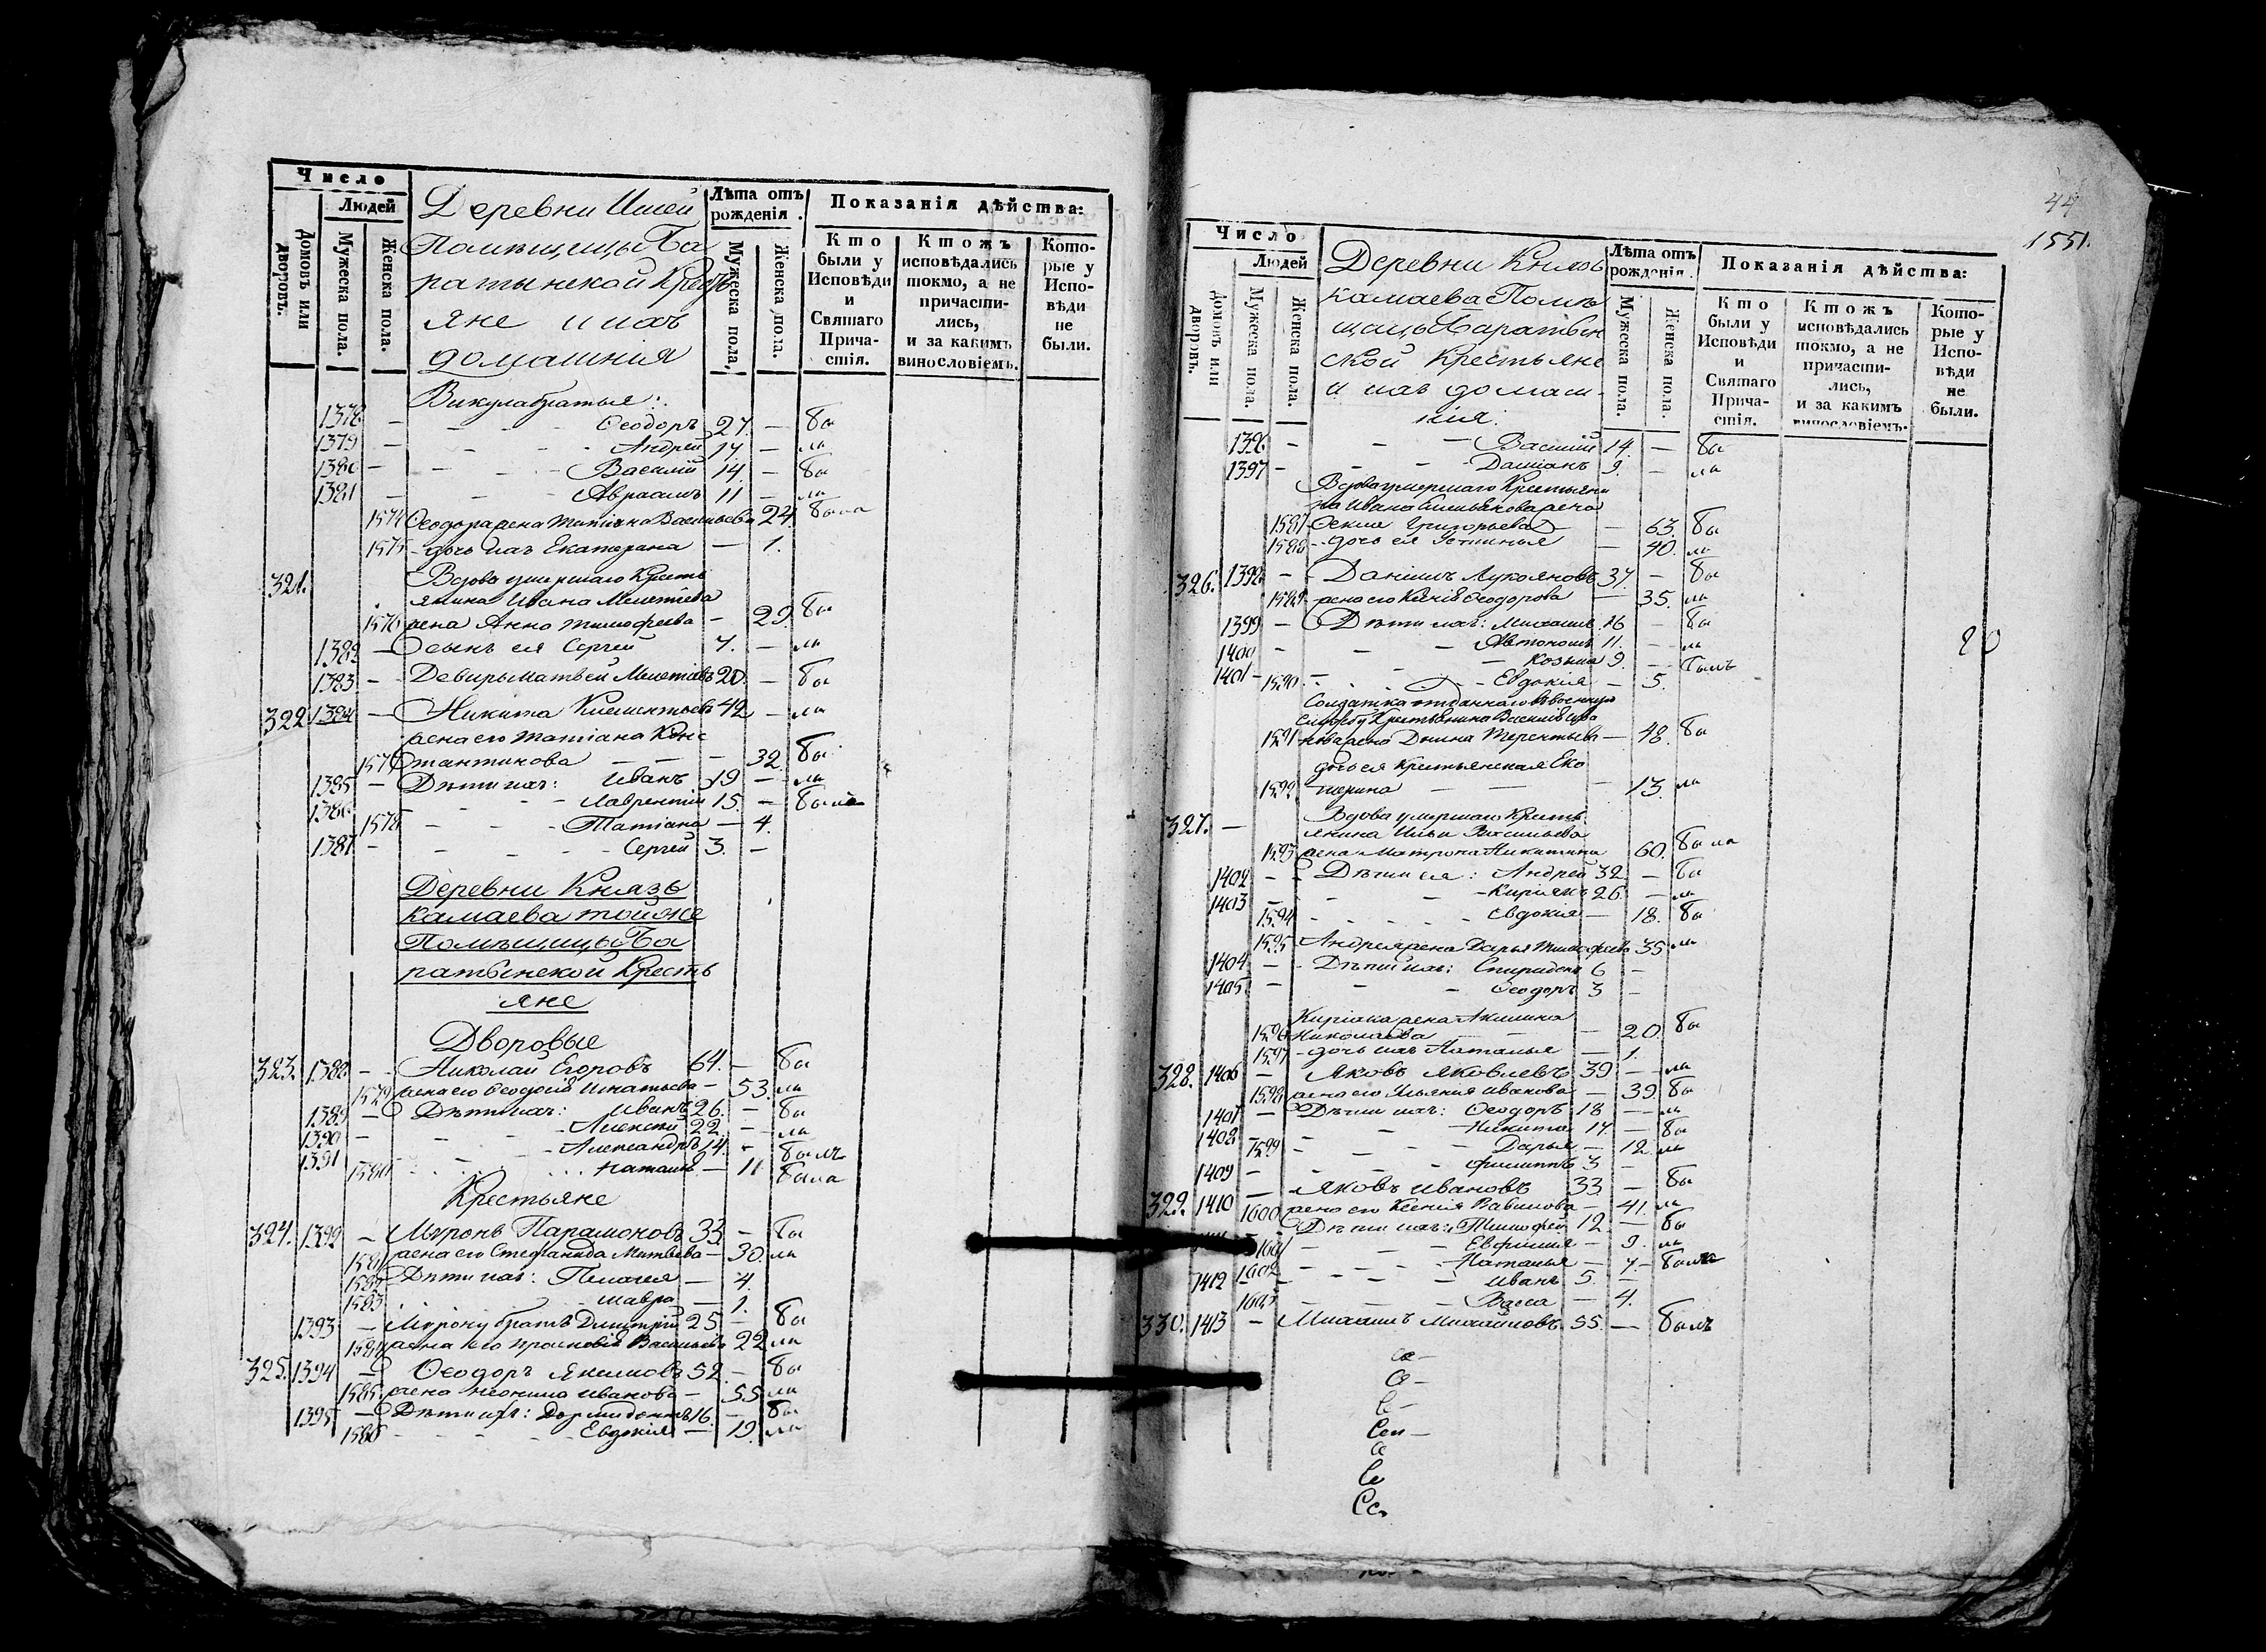 Число
Людей
Домовъ или дворовъ.
Мужеска пола.
Женска пола.
Деревни Ишей
Помѣщицы Ба
ратынской Кресть
яне и ихъ
домашнія
Лѣта отъ рожденія.
Мужеска пола.
Женска пола.
Показанія дѣйства:
Кто были у Исповѣди и Святаго Причастія.
Ктожъ исповѣдались токмо, а не причастились, и за какимъ винословіемъ.
Которые у Исповѣди не были.
Викула братья:
1378 – Ѳеодоръ 27. – бы
1379 – Андрей 17. – ли
1380 – Василій 14. – бы
1381 – Авраамъ 11 – ли
1574 Ѳеодора жена Татіяна Васильева 24. была
1575 – дочь ихъ Екатерина – 1.
321. Вдова умершаго Кресть
янина Ивана Мелетіева
1576 жена Анна Тимофеева – 29. бы
1382 – сынъ ея Сергей 7. – ли
1383 – Деверь Матвей Мелетіевъ 20. – бы
322. 1384 – Никита Клементьевъ 42 – ли
жена его Татіана Конс
1577 тантинова – 32. бы
1385 – Дѣти ихъ: Иванъ 19 – ли
1386 – Лаврентій 15. – были
1578 – Татіана – 4.
1387 – Сергей 3. –
Деревни Князь
камаева тойже
Помѣщицы Ба
ратынской Кресть
яне
Дворовые
323. 1388 – Николай Егоровъ 64. – бы
1579 жена его Ѳеодосія Игнатьева – 53. ли
1389 – Дѣти ихъ: Иванъ 26. – бы
1390 – Алексей 22. – ли
1391 – Александръ 14. – былъ
1580 – Наталія – 11 была
Крестьяне
324. 1392 – Миронъ Парамоновъ 33. – бы
1581 жена его Степанида Матвеева – 30. ли
1582 Дѣти ихъ: Пелагея – 4.
1583 Мавра – 1.
1393 – Мирону братъ Димитрій 25 – бы
1584 жена его Просковія Васильева 22 ли
325. 1394 – Ѳеодоръ Якимовъ 52. – бы
1585 жена Неонила Иванова – 55 ли
1395 – Дѣти ихъ: Дормидонтъ 16. – бы
1586 – Евдокія – 19. ли
44
1551.
Число
Людей
Домовъ или дворовъ.
Мужеска пола.
Женска пола.
Деревни Князь
камаева Помѣ
щицы Баратын
ской Крестьяне
и ихъ домаш-
нія.
Лѣта отъ рожденія.
Мужеска пола.
Женска пола.
Показанія дѣйства:
Кто были у Исповѣди и Святаго Причастія.
Ктожъ исповѣдались токмо, а не причастились, и за какимъ винословіемъ.
Которые у Исповѣди не были.
1396 – Василій 14. – бы
1397 – Даміанъ 9. – ли
Вдова умершаго Крестьяни
на Ивана жена
1587 Григорьева – 63. бы
1588 – дочь ея Устинья – 40. ли
326. 1398 – Даніилъ Лукояновъ 37. – бы
1589 жена его Ксенія Ѳеодорова – 35. ли
1399 – Дѣти ихъ: Михаилъ 16 – бы
1400 – Автономъ 11. – ли
1401 – Козьма 9. – былъ
1590 – Евдокія – 5.
20
Солдатка отданнаго въ военную
службу Крестьянина Василія Ива
1591 нова жена Терентьева – 48. бы
дочь ея Крестьянская Ека
1592 терина – 13. ли
327. – Вдова умершаго Кресть
янина Ильи Васильева
1593 жена Матрона Никитина 60. была
1402 – Дѣти ея: Андрей 32. – бы
1403 – Киріякъ 26. – ли
1594 – Евдокія – 18. бы
1595 Андрея жена Дарья Тимофеева 35 ли
1404 – Дѣти ихъ: Спиридонъ 6 –
1405 – Ѳеодоръ 3 –
Киріака жена Акилина
1596 Николаева – 20. бы
1597 – дочь ихъ Наталья – 1.
328. 1406 – Яковъ Яковлевъ 39 – ли
1598 жена его Ульянія Иванова – 39. бы
1407 – Дѣти ихъ: Ѳеодоръ 18 – ли
1408 – Никита 17. – бы
1599 – Дарья – 12. ли
1409 – Филиппъ 3 –
329. 1410 – Яковъ Ивановъ 33. – бы
1600 жена его Ксенія Вавилова – 41. ли
Дѣти ихъ: Тимофей 12. – бы
1601 – Евфимія – 9. ли
1602 – Наталья – 7. – была
1412 – Иванъ 5. –
1603 – Васса – 4.
330. 1413 – Михаилъ Михайловъ 55. – былъ